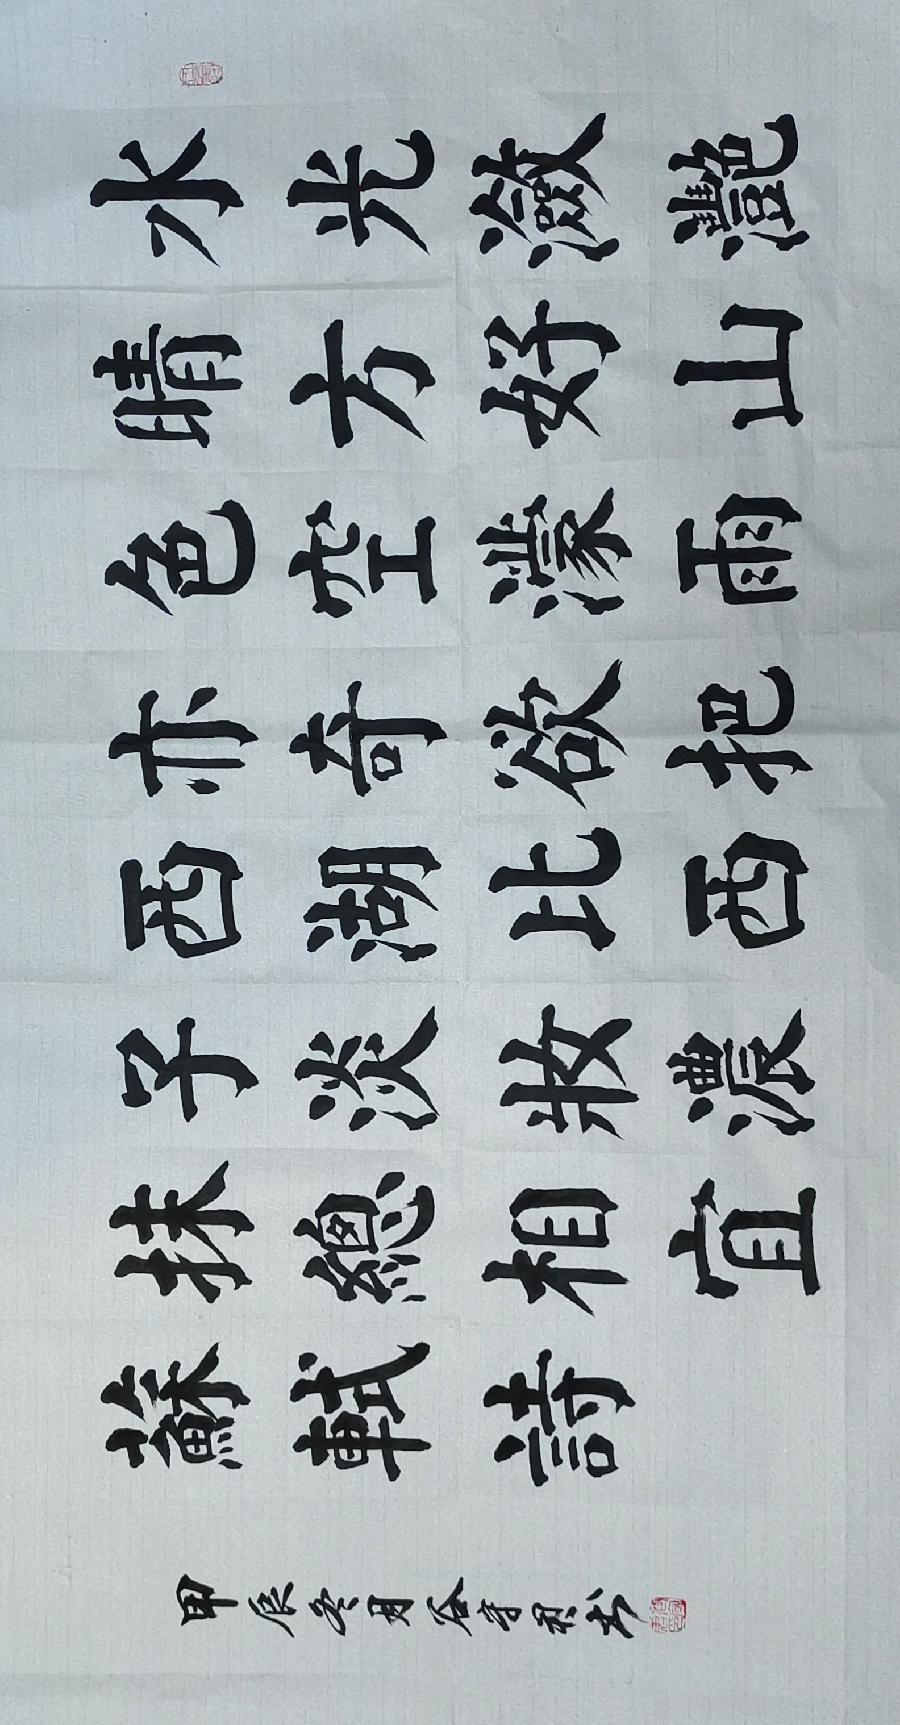 水光瀲灔
晴方好山
色空濛雨
亦奇欲把
西湖比西
子淡妝濃
抹總相宜
蘇軾詩
甲辰冬月